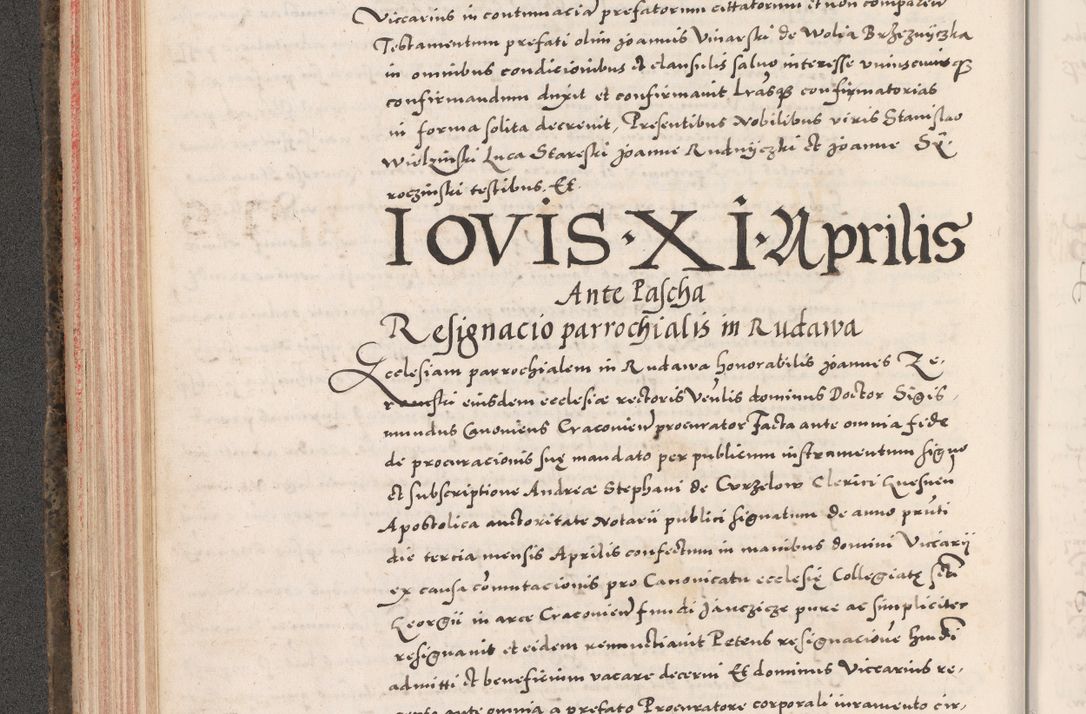 Viccarius in contumaciam prefatorum cittatorum et non comparen
Testamentum prefati olim Joannis Vinarski de Wolia Brzeznyczka
in omnibus condicionibus et clausulis salvo interesse uniuscuiusq
confirmandum duxit et confirmavit Lrasq confirmatorias
in forma solita decrevit, Presentibus Nobilibus viris Stanislao
Wielzinski Luca Stareski Joanne Rudnyczki et Joanne
roczinski testibus. Et
IOVIS · XI · Aprilis
Ante Pascha
Resignacio parrochialis in Rudawa
Ecclesiam parrochialem in Rudawa honorabilis Joannes Ze-
eiusdem ecclesiæ rectoris Venlis dominus Doctor Sigis-
mundus Canonicus Cracovien procurator Facta ante omnia fide
de procuracionis suę mandato per publicum instrumentum signo
et subscriptione Andreæ Stephani de Curzelow Clerici Gnesnen
Apostolica auctoritate Notarii publici signatum de anno prnti
die tercia mensis Aprilis confectum in manibus domini Viccarii
ex causa comutacionis pro Canonicatu ecclesię Collegiatę scti
Georgii in arce Cracovien fundi Janczicze pure ac simpliciter
resignavit et eidem renunctiavit Petens resignacione hmdi
admitti et beneficium vacare decerni Et dominus Viccarius re-
ante omnia a prefato Procuratore corporali iuramento cir-